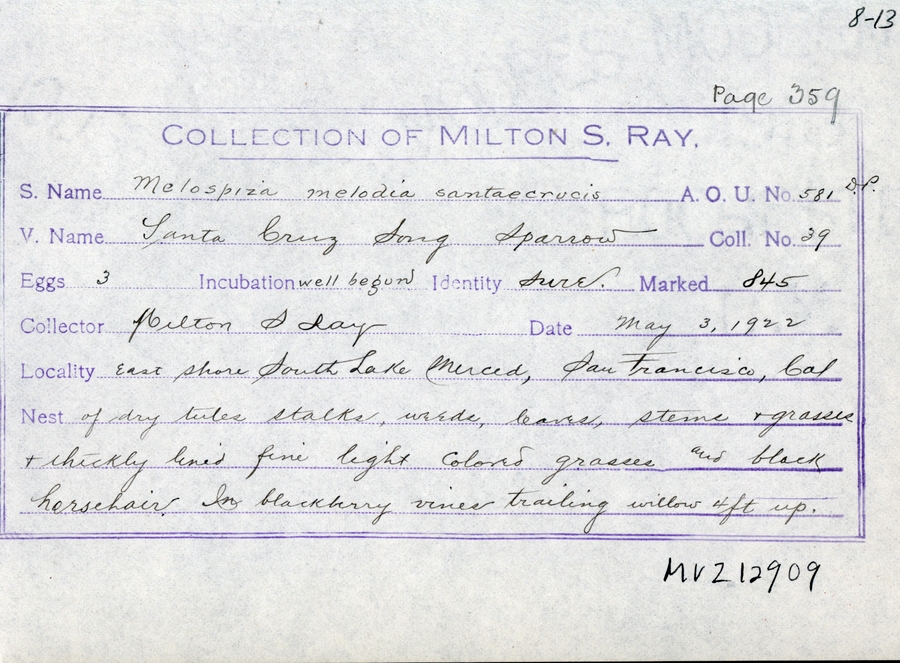 8-13
Page 359
COLLECTION OF MILTON S. RAY.
S. Name Melospiza melodia santaecrucis A. O. U. No. 581 D.P.
V. Name Santa Cruz Song Sparrow Coll. No. 39
Eggs 3 Incubation well begun Identity sure. Marked 845
Collector Milton S Ray Date May 3, 1922
Locality East shore South Lake Merced, San Francisco, Cal
Nest of dry tules stalks, weeds, leaves, stems + grasses
+ thickly lined fine light colored grasses and black
horsehair. In blackberry vines trailing willow 4ft up.
MVZ12909